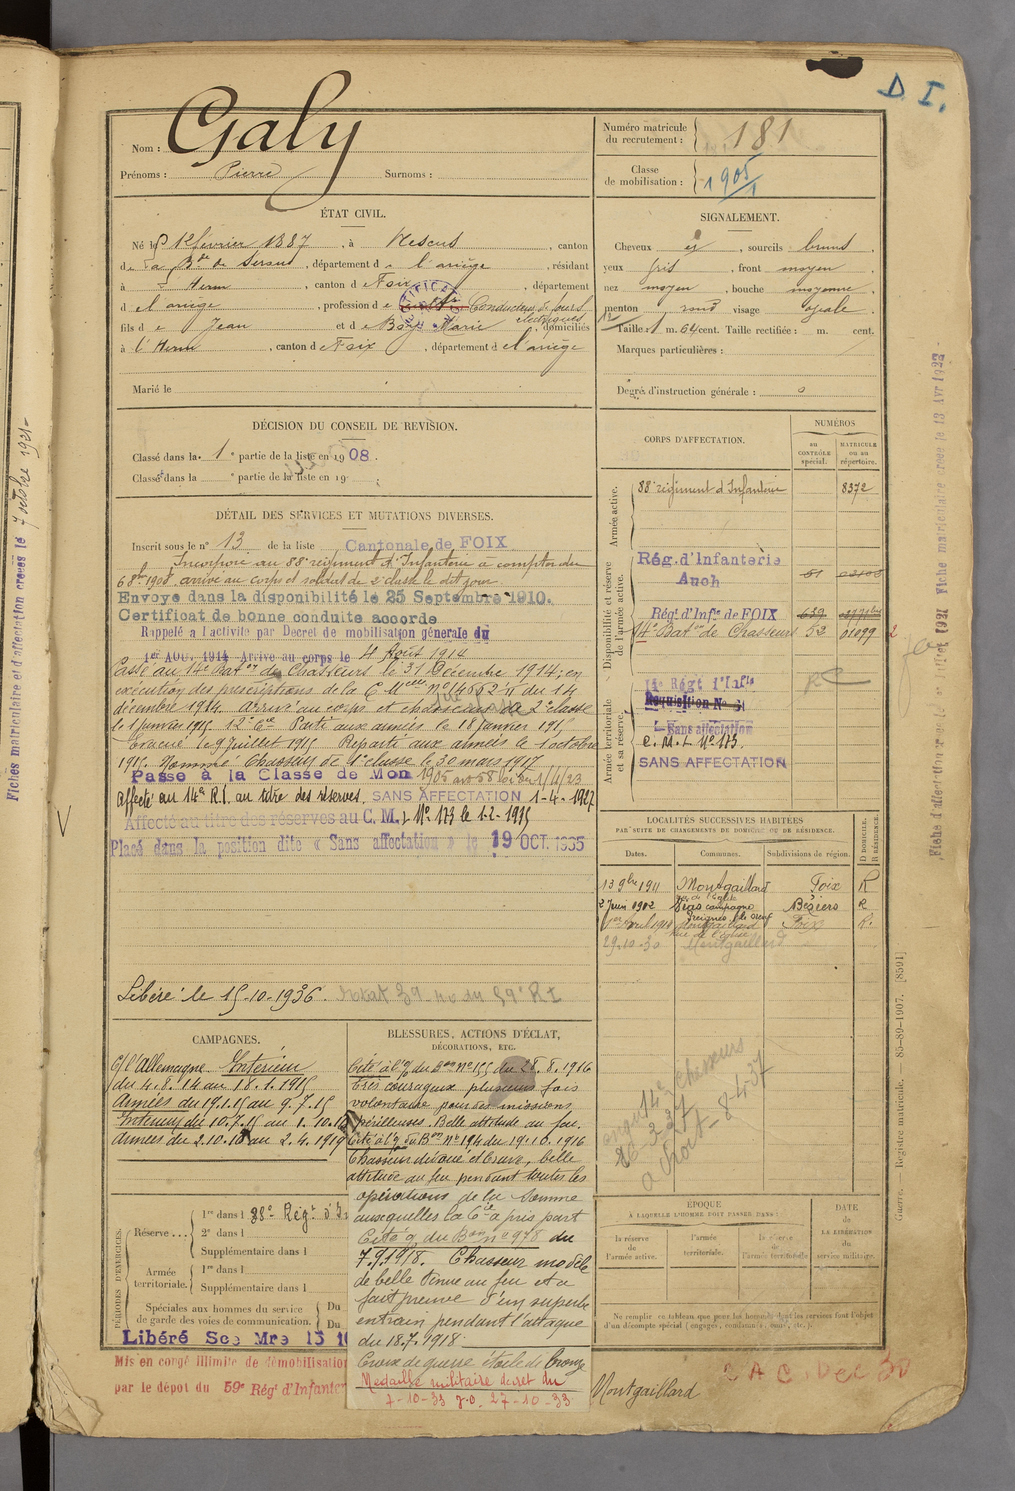 D. I.
Nom : Galy
Prénoms : Pierre Surnoms :
Numéro matricule du recrutement : 181
Classe de mobilisation : 1905
ÉTAT CIVIL.
Né le 12 février 1887, à Nescus, canton
de La B^de de Serou, département de l'ariège, résidant
à L'Herm, canton de Foix, département
d el'ariège, profession de Conducteur de fours électriques
fils de Jean et de Marie, domiciliés
à l'Herm, canton de Foix, département de l'ariège
Marié le
SIGNALEMENT.
Cheveux, sourcils bruns.
yeux gris, front moyen
nez moyen, bouche moyenne,
menton rond visage ovale.
Taille : 1 m. 64 cent. Taille rectifiée : m. cent.
Marques particulières :
Degré d'instruction générale : 0
DÉCISION DU CONSEIL DE RÉVISION.
Classé dans la 1^e partie de la liste en 1908.
Classé dans la ^e partie de la liste en 19
DÉTAIL DES SERVICES ET MUTATIONS DIVERSES.
Inscrit sous le n° 13 de la liste Cantonale de FOIX
Incorporé au 88^e régiment d'Infanterie à compter du
6 8bre 1908, arrivé au corps et soldat de 2^e classe le dit jour.
Envoyé dans la disponibilité le 25 Septembre 1910.
Certificat de bonne conduite accordé
Rappelé à l'activité par Decret de mobilisation générale du
1er AOUT 1914 Arrivé au corps le 4 Août 1914
Passé au 14^e Bat^on de Chasseurs le 31 Décembre 1914, en
exécution des prescriptions de la C^e M^elle N° 14552 du 14
décembre 1914. Arrivé au corps et chasseur de 2^e classe
le 1 janvier 1915. 13^e C^ie Parti aux armées le 18 janvier 1915
Evacué le 9 juillet 1915 Reparti aux armées le 1 octobre
1915. Nommé Chasseur de 1^e classe le 30 mars 1917
Passé à la Classe de Mon 1905
Affecté au 14^e R.I. au titre des réserves. SANS AFFECTATION 1-4-1927
Affecté au titre des réserves au C. M. I. N° 173 le 1-2-1935
Placé dans la position dite « Sans affectation » le 19 OCT. 1935
Libéré le 15-10-1936.
CORPS D'AFFECTATION.
NUMÉROS
au CONTRÔLE spécial.
MATRICULE ou au répertoire.
Armée active.
88^e régiment d'Infanterie 8372
Disponibilité et réserve de l'armée active.
Rég. d'Infanterie Auch 61
Rég^t d'Inf^ie de FOIX 659
14^e Bat^on de Chasseurs 52 01099
Armée territoriale et sa réserve.
14^e Rég^t d'Inf^ie
Requisition N°
Sans affectation
C. M. I. N° 173.
SANS AFFECTATION
LOCALITÉS SUCCESSIVES HABITÉES
PAR SUITE DE CHANGEMENTS DE DOMICILE OU DE RÉSIDENCE.
Dates. Communes. Subdivisions de région. D DOMICILE. R RÉSIDENCE.
13 9bre 1911 Montgaillard Foix R
2 Juin 1912 Béziers R
Foix R.
29-10-30 Montgaillard
CAMPAGNES.
C/ l'Allemagne. Intérieur
du 4.8.14 au 18.1.1915
Armées du 19.1.15 au 9.7.15
Intérieur du 10.7.15 au 1.10.15
Armées du 2.10.15 au 2.4.1919
BLESSURES, ACTIONS D'ÉCLAT,
DÉCORATIONS, ETC.
Cité à l'o/ du B^on N° 155 du 28.8.1916
Très courageux plusieurs fois
volontaire pour des missions
périlleuses. Belle attitude au feu.
Cité à l'o/ du B^on N° 194 du 19.10.1916
Chasseur dévoué et brave, belle
attitude au feu pendant toutes les
opérations de la Somme
auxquelles la C^ie a pris part
Cité o/ du B^on n° 978 du
7.9.1918. Chasseur modèle
de belle tenue au feu et a
fait preuve d'un superbe
entrain pendant l'attaque
du 18.7.1918.
Croix de guerre étoile de bronze
Médaille militaire décret du
7-10-33 J.O. 27-10-33
PÉRIODES D'EXERCICES.
Réserve... 1^re dans l 88^e Rég^t d'I
2^e dans l
Supplémentaire dans l
Armée territoriale. 1^re dans l
Supplémentaire dans l
Spéciales aux hommes du service de garde des voies de communication. Du
Du
Libéré Sce Mre 15 10
Mis en congé illimité de démobilisation
par le dépôt du 59^e Rég^t d'Infanter
ÉPOQUE
À LAQUELLE L'HOMME DOIT PASSER DANS :
la réserve de l'armée active. l'armée territoriale. la réserve de l'armée territoriale.
DATE de LA LIBÉRATION du service militaire.
Ne remplir ce tableau que pour les hommes dont les services font l'objet d'un décompte spécial (engagés, condamnés, omis, etc.).
Montgaillard
Guerre. — Registre matricule. — 85-89-1907. [8591]
Fiches matriculaire et d'affectation crées le 7 octobre 1931